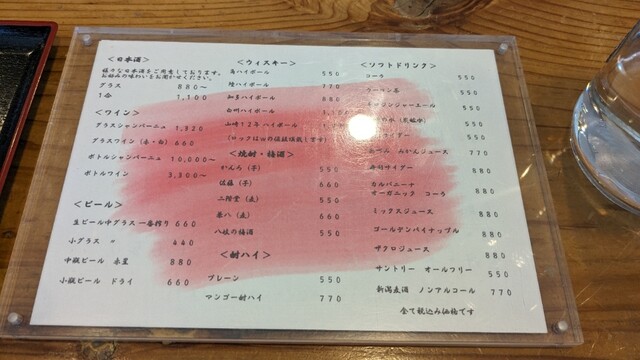 ＜日本酒＞
様々な日本酒をご用意しております。
お好みの味わいをお聞かせください。
グラス 880～
1合 1,100
＜ワイン＞
グラスシャンパーニュ 1,320
グラスワイン（赤・白） 660
ボトルシャンパーニュ 10,000～
ボトルワイン 3,300～
＜ビール＞
生ビール中グラス 一番搾り 660
小グラス 〃 440
中瓶ビール 赤星 880
小瓶ビール ドライ 660
＜ウィスキー＞
角ハイボール 550
陸ハイボール 770
知多ハイボール 880
白州ハイボール
山崎12年ハイボール
＜焼酎・梅酒＞
かんろ（芋） 550
佐藤（芋） 660
二階堂（麦） 550
兼八（麦） 660
八岐の梅酒 550
＜酎ハイ＞
プレーン 550
マンゴー酎ハイ 770
＜ソフトドリンク＞
コーラ 550
ウーロン茶 550
ジンジャーエール 550
サイダー 550
みかんジュース 770
サイダー 770
カルバニーナ
オーガニック コーラ 880
ミックスジュース 880
ゴールデンパイナップル 880
ザクロジュース 880
サントリー オールフリー 550
新潟麦酒 ノンアルコール 770
全て税込み価格です